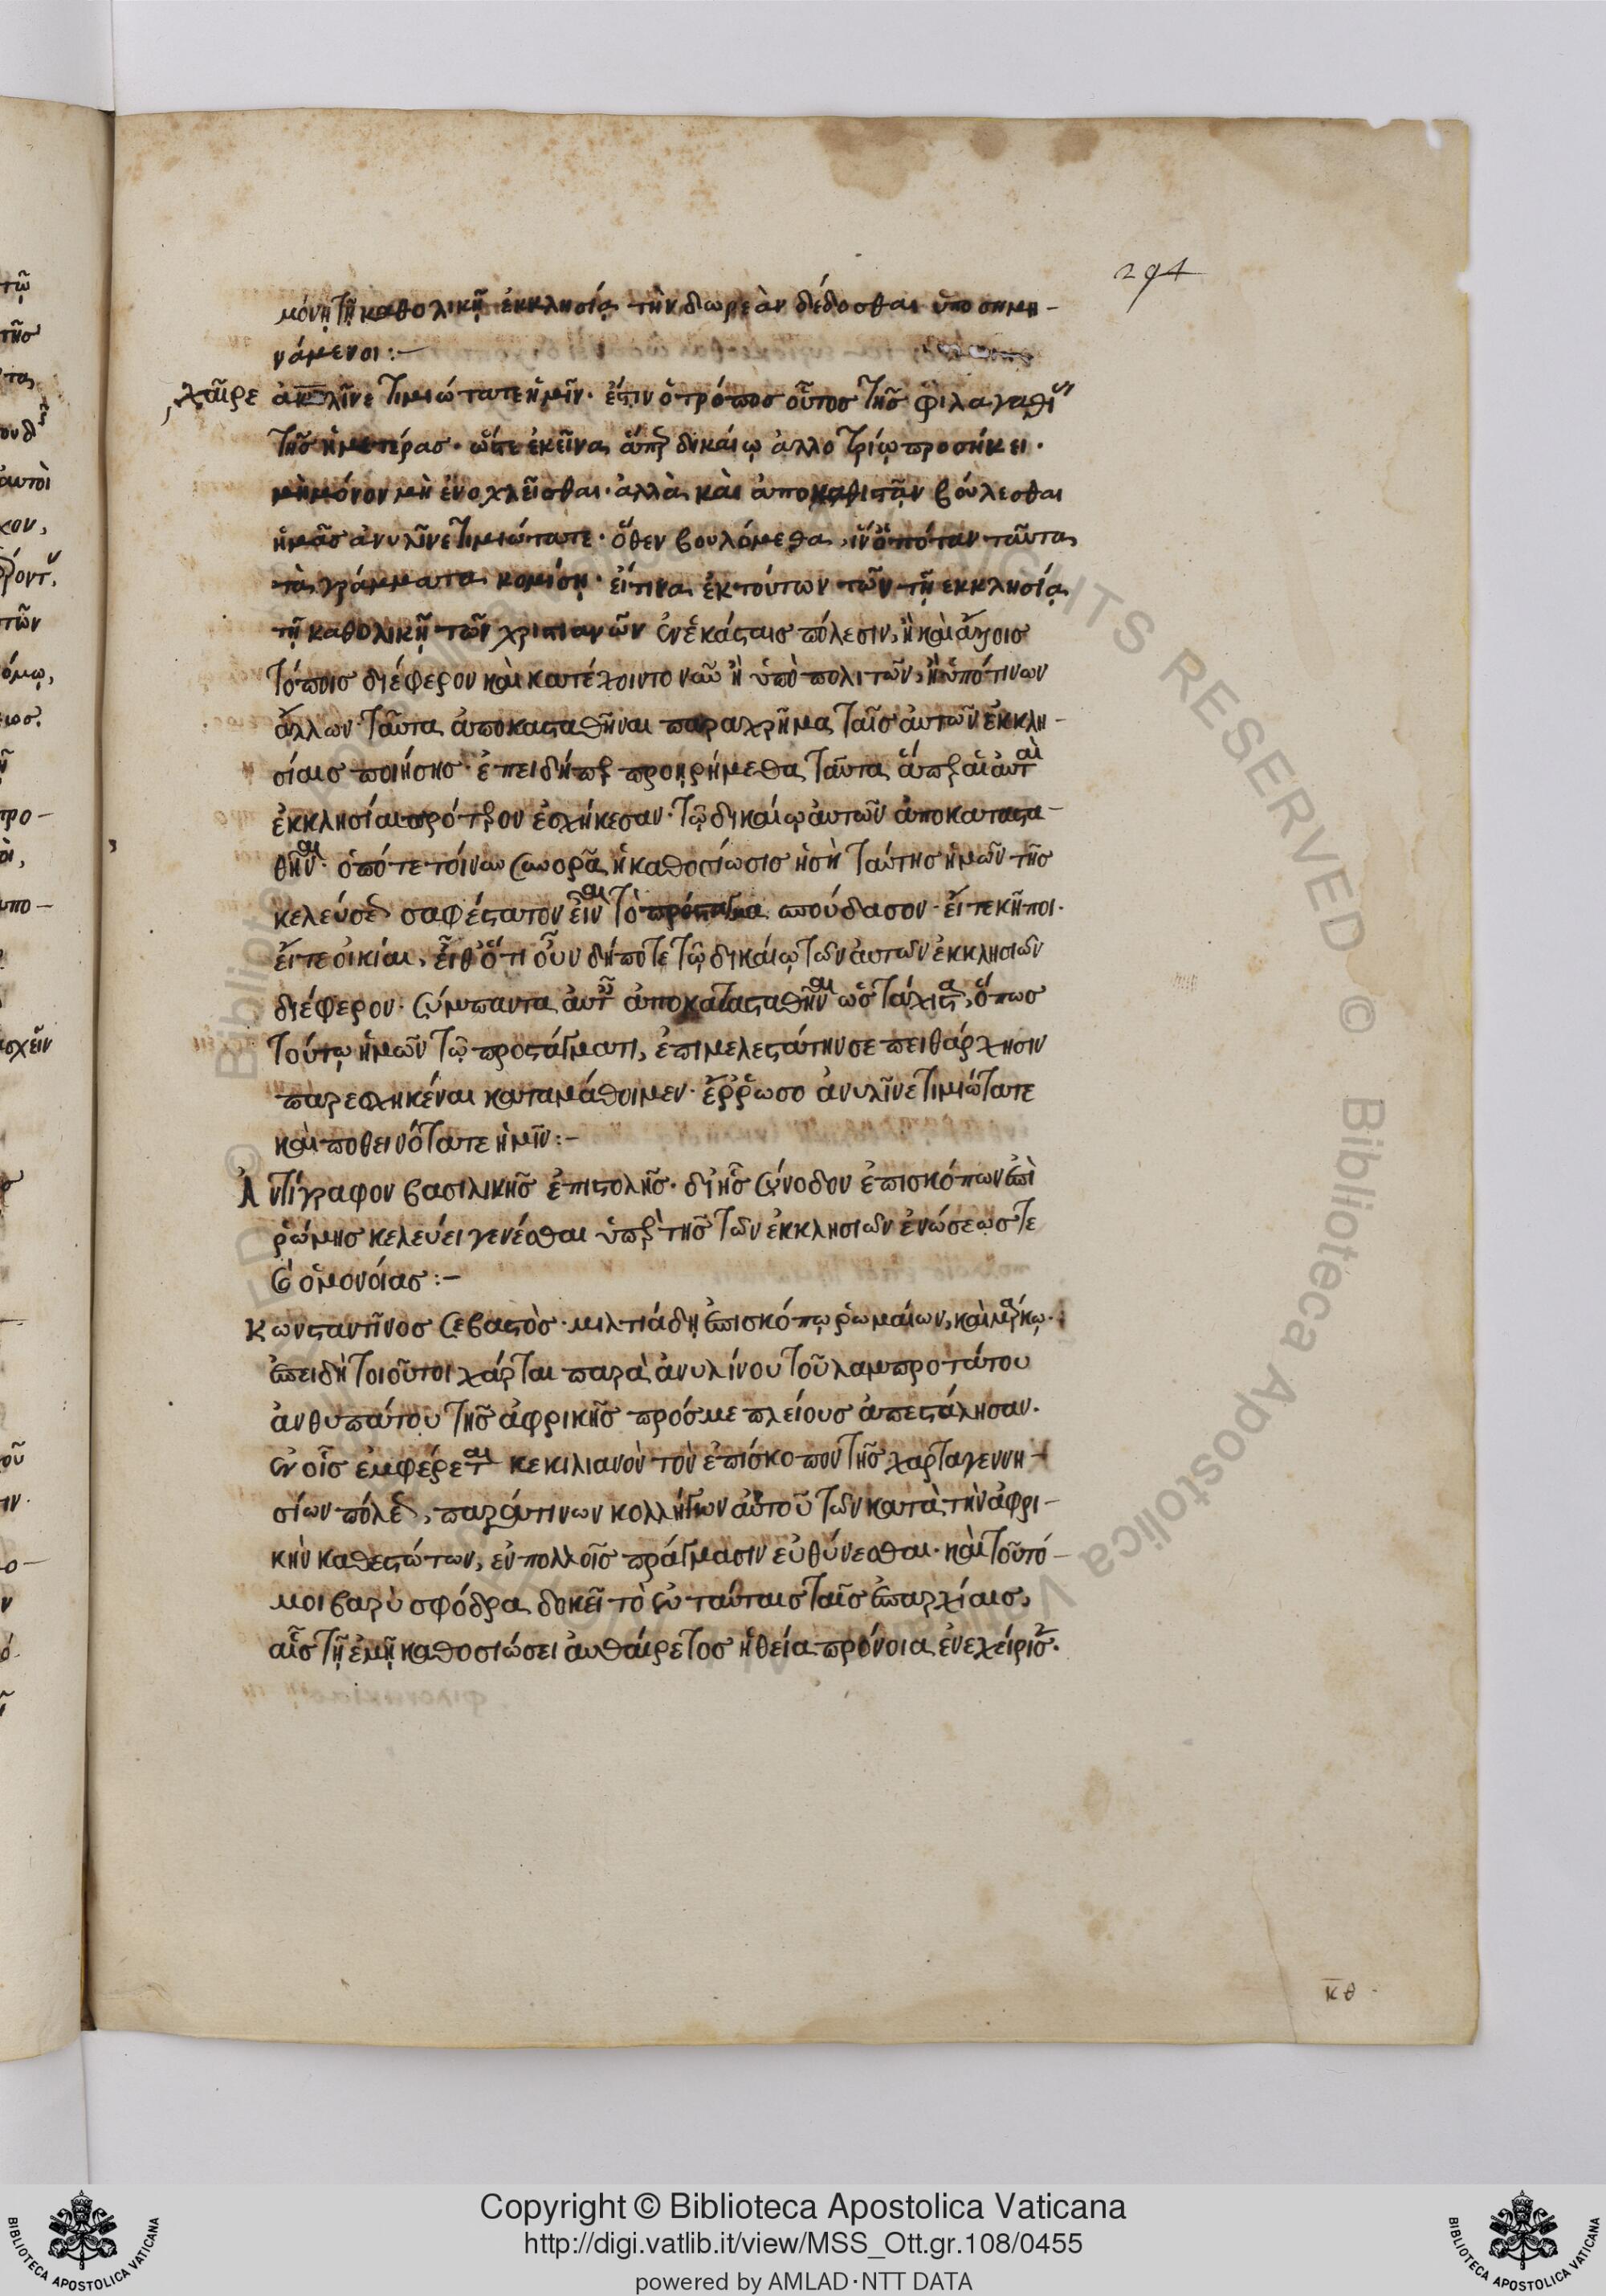 294
μόνῃ τῇ καθολικῇ ἐκκλησίᾳ τὴν δωρεὰν δεδόσθαι ὑποσημη-
νάμενοι:-
χαῖρε ἀνυλῖνε τιμιώτατε ἡμῖν· ἔστιν ὁ τρόπος οὗτος τῆς φιλαγαθί
τῆς ἡμετέρας· ὥστε ἐκεῖνα ἅπερ δικαίῳ ἀλλοτρίῳ προσήκει·
μὴ μόνον μὴ ἐνοχλεῖσθαι· ἀλλὰ καὶ ἀποκαθιστᾶν βούλεσθαι
ἡμᾶς ἀνυλῖνε τιμιώτατε· ὅθεν βουλόμεθα, ἵν' ὁπόταν ταῦτα
τὰ γράμματα κομίσῃ· εἴ τινα ἐκ τούτων τῶν τῇ ἐκκλησίᾳ
τῇ καθολικῇ τῶν χριστιανῶν ἐν ἑκάσταις πόλεσιν, ἢ καὶ ἄλλοις
τόποις διέφερον καὶ κατέχοιντο νῦν ἢ ὑπὸ πολιτῶν, ἢ ὑπό τινων
ἄλλων· ταῦτα ἀποκασταθῆναι παραχρῆμα ταῖς αὐτῶν ἐκκλη-
σίαις ποιήσῃς· ἐπειδήπερ προῃρήμεθα ταῦτα ἅπερ αἱ αὐταὶ
ἐκκλησίαι πρότερον ἐσχήκεσαν· τῷ δικαίῳ αὐτῶν ἀποκαταστα-
θῆναι· ὁπότε τοίνυν συνορᾷ ἡ καθοσίωσις ἡ σὴ ταύτης ἡμῶν τῆς
κελεύσεως σαφέστατον εἶναι τὸ πρόσταγμα σπούδασον· εἴτε κῆποι·
εἴτε οἰκίαι, εἴθ' ὅτι οὖν δήποτε τῷ δικαίῳ τῶν αὐτῶν ἐκκλησιῶν
διέφερον· σύμπαντα αὐτ ἀποκατασταθῆναι ὡς τάχιστα, ὅπως
τούτῳ ἡμῶν τῷ προστάγματι, ἐπιμελεστάτην σε πειθάρχησιν
παρεσχηκέναι καταμάθοιμεν· ἔῤῥωσο ἀνυλῖνε τιμιώτατε
καὶ ποθεινότατε ἡμῖν:-
Ἀντίγραφον βασιλικῆς ἐπιστολῆς· δι' ἧς σύνοδον ἐπισκόπων ἐπὶ
ῥώμης κελεύει γενέσθαι ὑπὲρ τῆς τῶν ἐκκλησιῶν ἑνώσεώς τε
καὶ ὁμονοίας:-
Κωνσταντῖνος σεβαστὸς· μιλτιάδῃ ἐπισκόπῳ ῥωμαίων, καὶ μάρκῳ·
ἐπειδὴ τοιοῦτοι χάρται παρὰ ἀνυλίνου τοῦ λαμπροτάτου
ἀνθυπάτου τῆς ἀφρικῆς πρός με πλείους ἀπεστάλησαν·
ἐν οἷς ἐμφέρεται κεκιλιανὸν τὸν ἐπίσκοπον τῆς χαρταγεννη-
σίων πόλεως, παρά τινων κολλήγων αὐτοῦ τῶν κατὰ τὴν ἀφρι-
κὴν καθεστώτων, ἐν πολλοῖς πράγμασιν εὐθύνεσθαι· καὶ τοῦτό-
μοι βαρὺ σφόδρα δοκεῖ τὸ ἐν ταύταις ταῖς ἐπαρχίαις,
αἷς τῇ ἐμῇ καθοσιώσει αὐθαίρετος ἡ θεία πρόνοια ἐνεχείρισε·
κθ
Copyright © Biblioteca Apostolica Vaticana
http://digi.vatlib.it/view/MSS_Ott.gr.108/0455
powered by AMLAD·NTT DATA